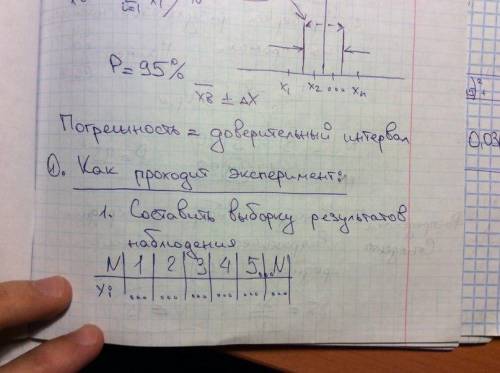 i=1
P = 95%
x₁ x₂ ... xₙ
x̄в ± Δx
Погрешность = доверительный интервал
①. Как проходит эксперимент:
1. Составить выборку результатов
наблюдения
N | 1 | 2 | 3 | 4 | 5...N |
xi | ... | ... | ... | ... | ... | ... |